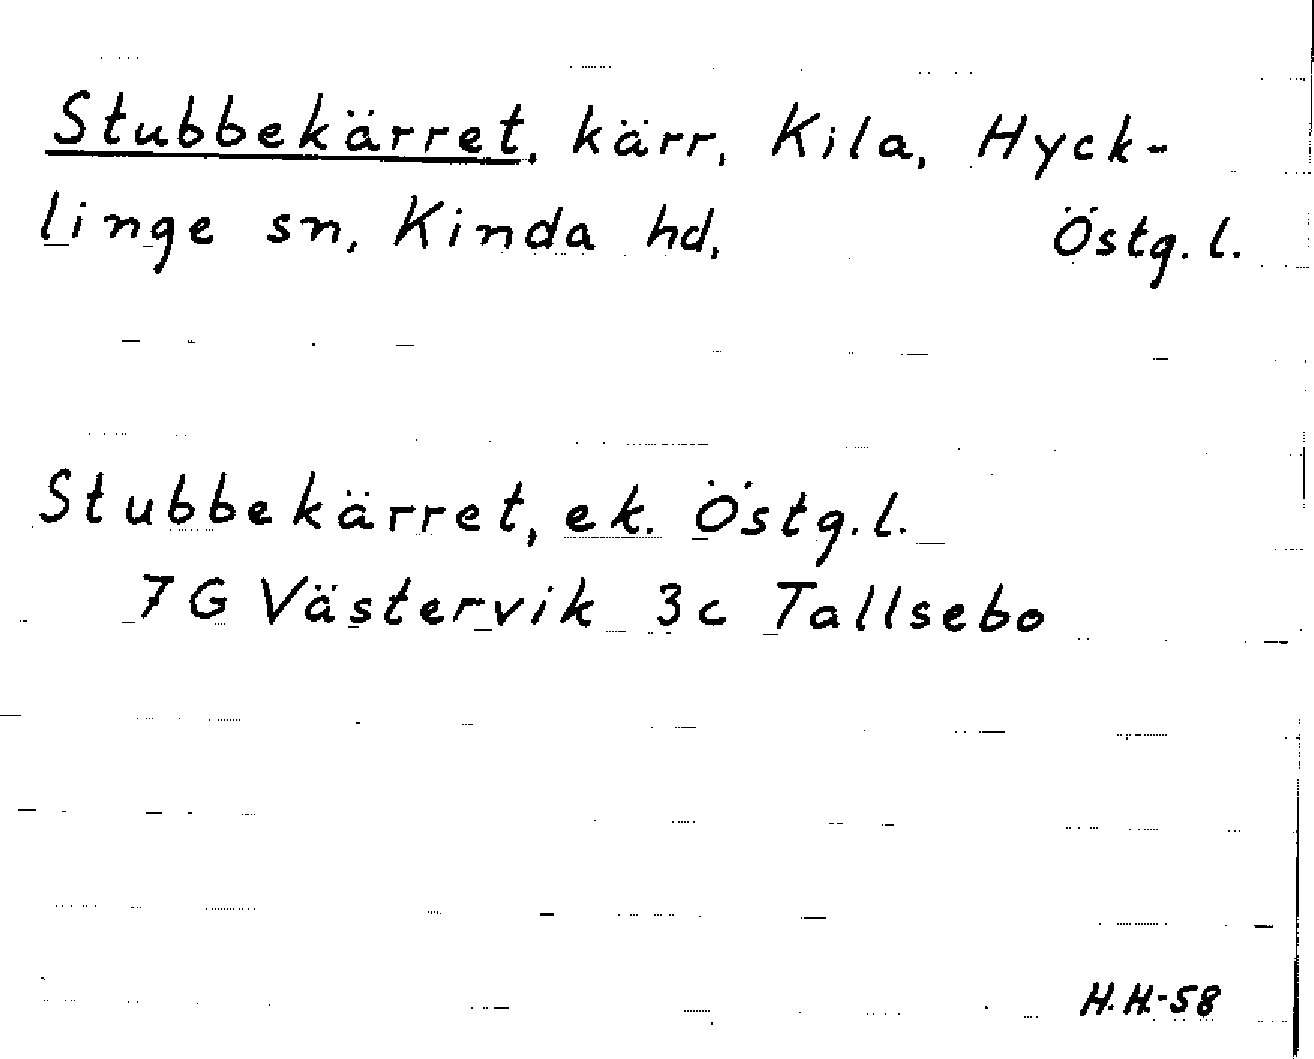 Stubbekärret, kärr, Kila, Hyck-
linge sn, Kinda hd, Östg. l.
Stubbekärret, ek. Östg. l.
7G Västervik 3c Tallsebo
H.H.-58